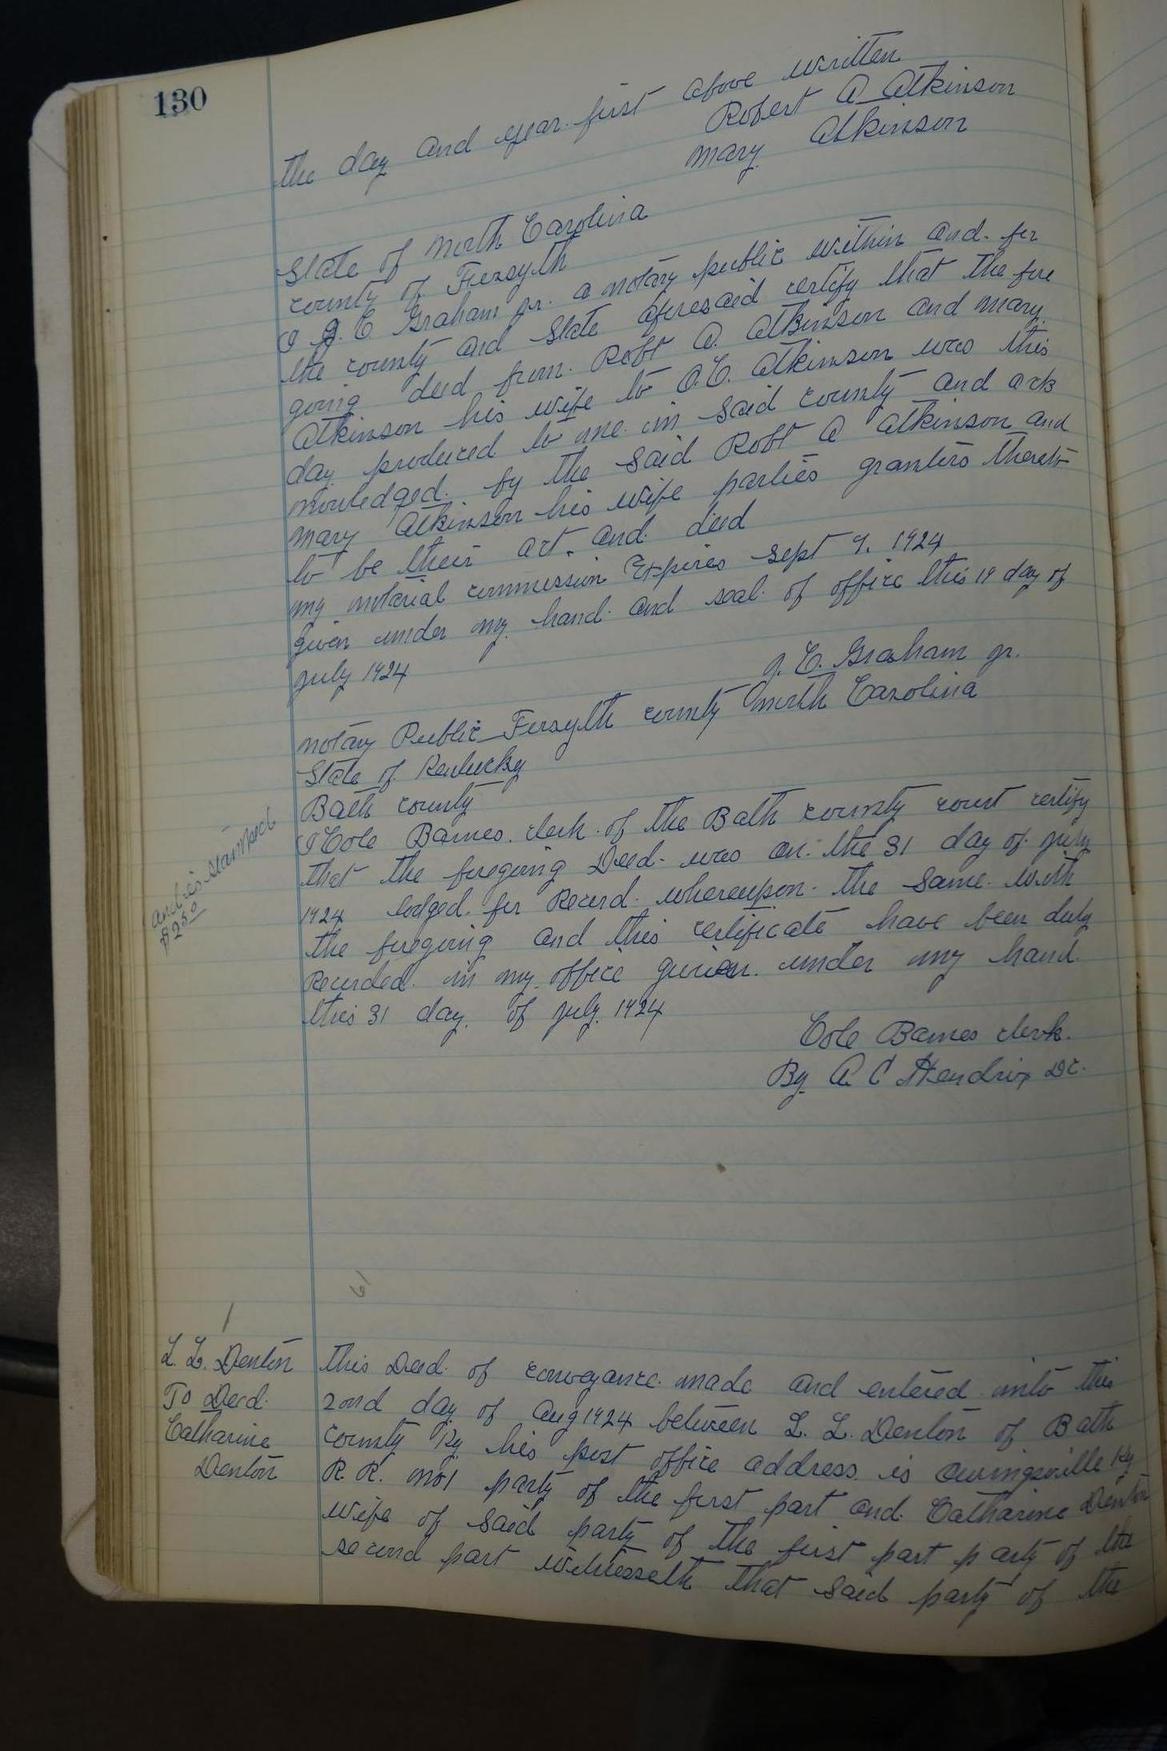 130
the day and year first above written
Robert A Atkinson
Mary Atkinson
State of North Carolina
county of Forsyth
I J. C. Graham jr. a notary public within and for
the county and State aforesaid certify that the fore
going deed from Robt A. Atkinson and Mary
Atkinson his wife to O.C. Atkinson was this
day produced to me in said county and ack
nowledged by the said Robt A Atkinson and
Mary Atkinson his wife parties grantors thereto
to be their act and deed
my notarial commission Expires Sept 9. 1924
given under my hand and seal of office this 19 day of
July 1924
J. C. Graham jr.
notary Public Forsyth county North Carolina
State of Kentucky
Bath county
I Cole Barnes clerk of the Bath county court certify
that the foregoing Deed was on the 31 day of July
1924 lodged for Record whereupon the same with
and is stamped
$2.50
the foregoing and this certificate have been duly
Recorded in my office given under my hand
this 31 day of July 1924
Cole Barnes clerk.
By A C Hendrix DC.
L. L. Denton
To Deed
Catharine
Denton
this Deed of conveyance made and entered into this
2ond day of Aug 1924 between L. L. Denton of Bath
county Ky his post office address is Owingsville Ky
R. R. No 1 party of the first part and Catharine Denton
wife of said party of the first part party of the
second part witnesseth that said party of the